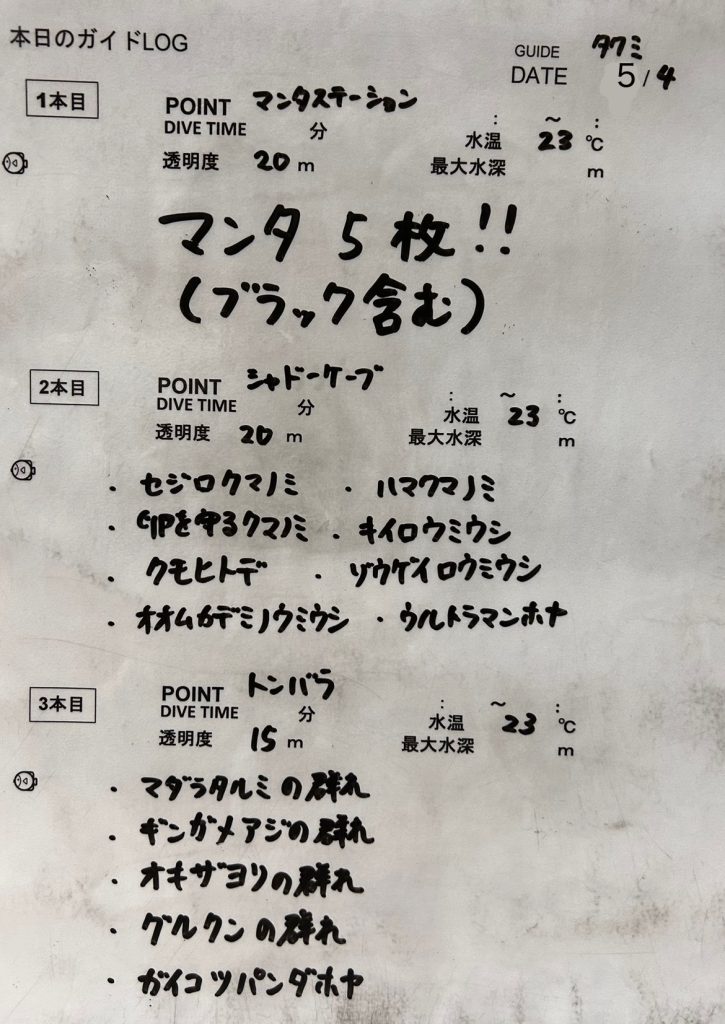 本日のガイドLOG
GUIDE タクミ
DATE 5/4
1本目
POINT マンタステーション
DIVE TIME 分 : ～ :
水温 23 ℃
透明度 20 m 最大水深 m
マンタ 5 枚!!
(ブラック含む)
2本目
POINT シャドーケーブ
DIVE TIME 分 : ～ :
水温 23 ℃
透明度 20 m 最大水深 m
・セジロクマノミ ・ハマクマノミ
・卵を守るクマノミ ・キイロウミウシ
・クモヒトデ ・ゾウゲイロウミウシ
・オオムカデミノウミウシ ・ウルトラマンホヤ
3本目
POINT トンバラ
DIVE TIME 分 : ～ :
水温 23 ℃
透明度 15 m 最大水深 m
・マダラタルミの群れ
・ギンガメアジの群れ
・オキザヨリの群れ
・グルクンの群れ
・ガイコツパンダホヤ